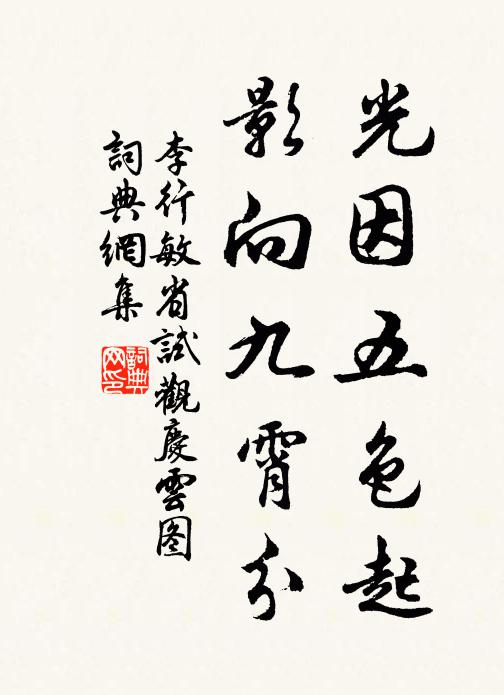 光因五色起
影向九霄分
李行敏省試觀慶雲图
詞典網集
詞典网印